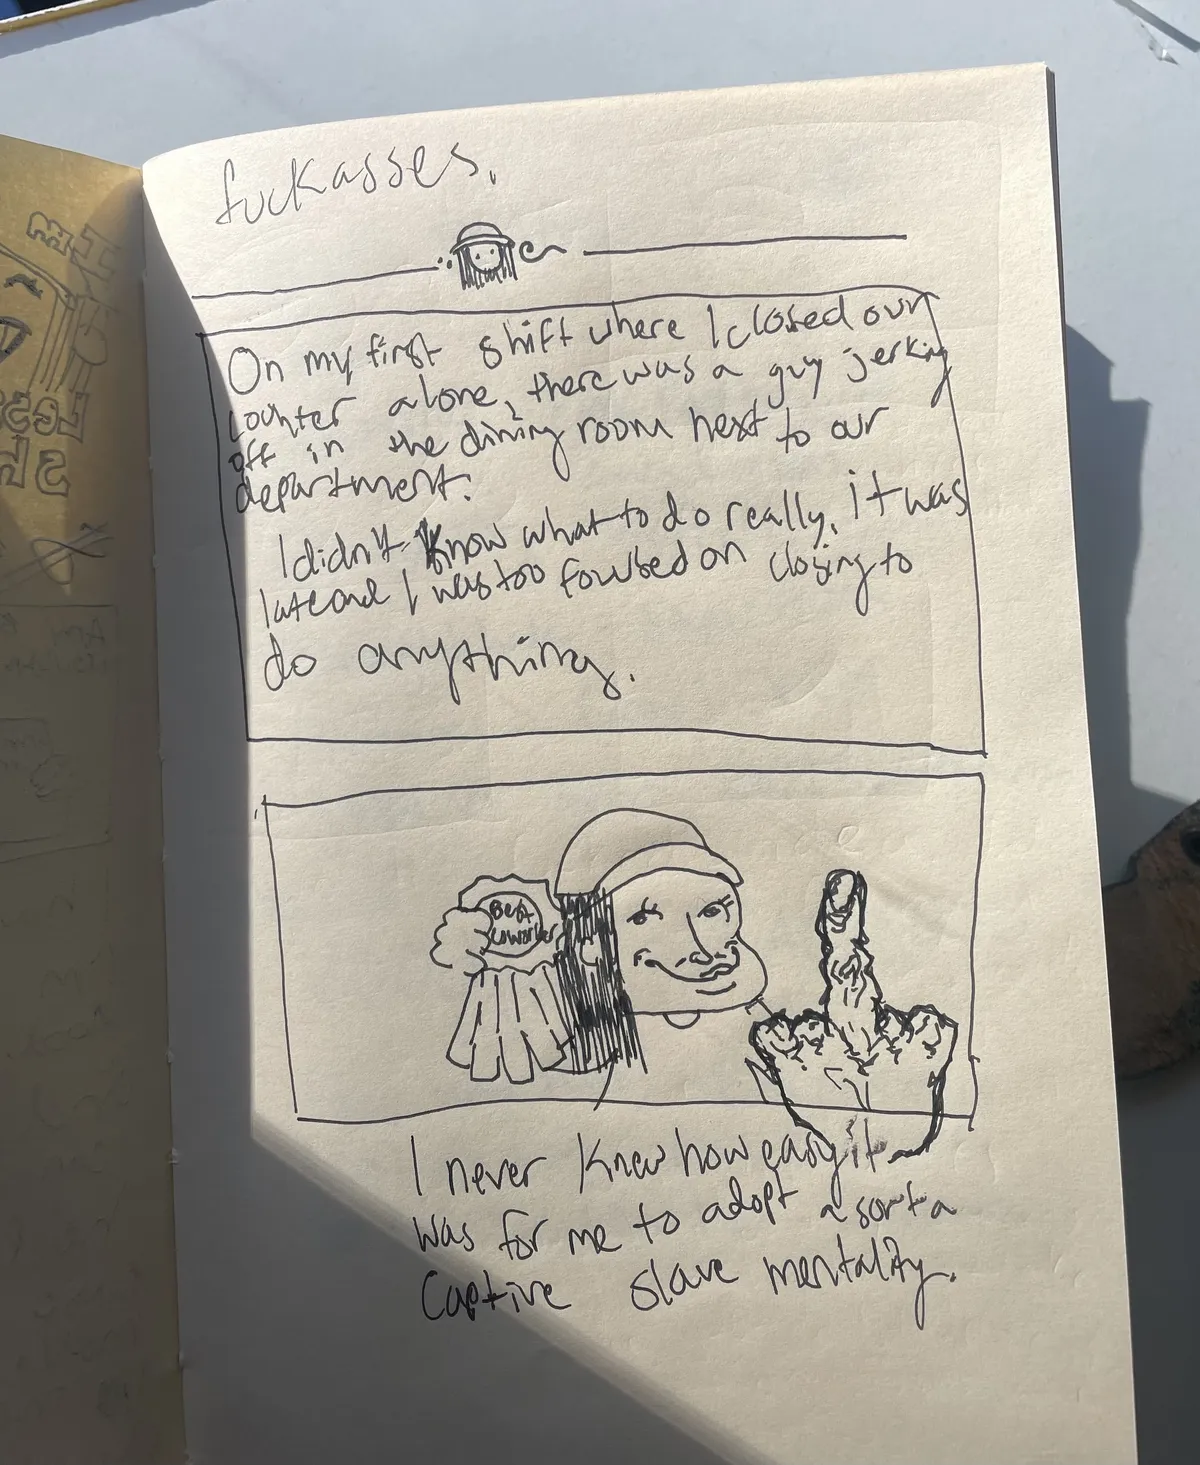 fuckasses.
On my first shift where I closed our
counter alone, there was a guy jerking
off in the dining room next to our
department.
I didn't know what to do really, it was
late and I was too focused on closing to
do anything.
Best
coworker
I never knew how easy it
was for me to adopt a sorta
Captive slave mentality.